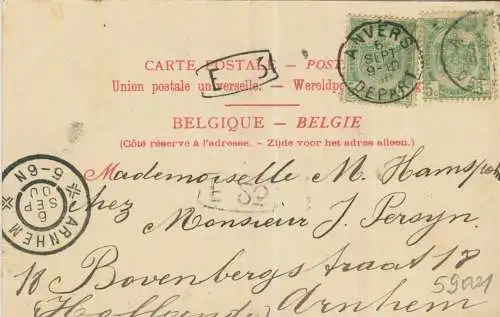 CARTE POSTALE – POS
Union postale universelle. – Wereldpo
BELGIQUE – BELGIE
(Côté réservé à l'adresse. – Zijde voor het adres alleen.)
F 3
ANVERS
6
SEPT
9-10
DEPART
5c
5-6N
6
SEP
00
ARNHEM
Mademoiselle M. Hams
chez Monsieur J. Persyn
18 Bovenbergstraat 18
(Hollande) Arnhem
59021